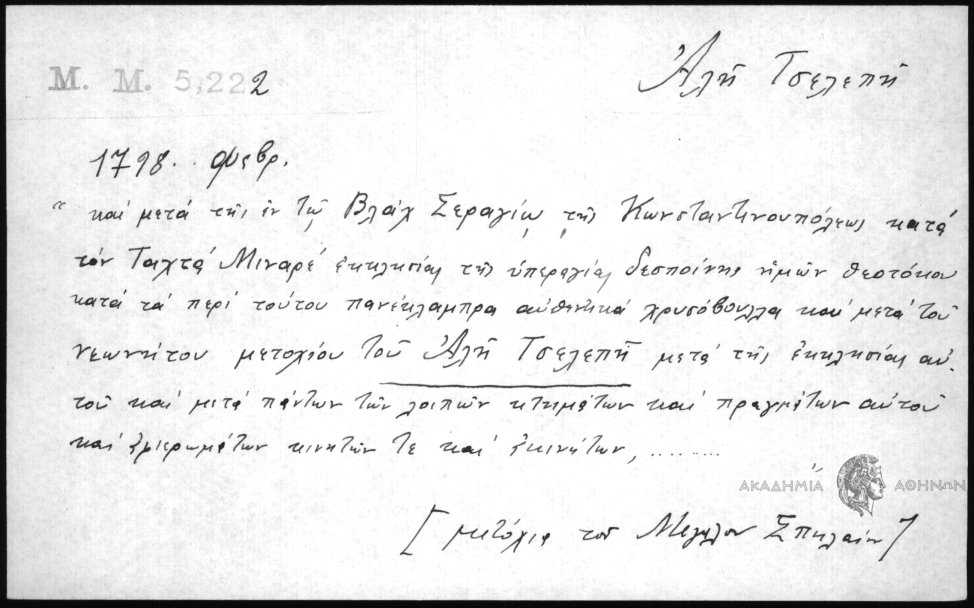 Μ. Μ. 5,222
Ἀλῆ Τσελεπῆ
1798. Φεβρ.
“ καὶ μετὰ τῆς ἐν τῷ Βλὰχ Σεραγίῳ τῆς Κωνσταντινουπόλεως κατὰ
τὸν Ταχτᾶ Μιναρὲ ἐκκλησίας τῆς ὑπεραγίας δεσποίνης ἡμῶν θεοτόκου
κατὰ τὰ περὶ τούτου πανέκλαμπρα αὐθεντικὰ χρυσόβουλλα καὶ μετὰ τοῦ
νεωνήτου μετοχίου τοῦ Ἀλῆ Τσελεπῆ μετὰ τῆς ἐκκλησίας αὐ-
τοῦ καὶ μετὰ πάντων τῶν λοιπῶν κτημάτων καὶ πραγμάτων αὐτοῦ
καὶ ἀφιερωμάτων κινητῶν τε καὶ ἀκινήτων, ........
ΑΚΑΔΗΜΙΑ ΑΘΗΝΩΝ
[μετόχια τοῦ Μεγάλου Σπηλαίου]